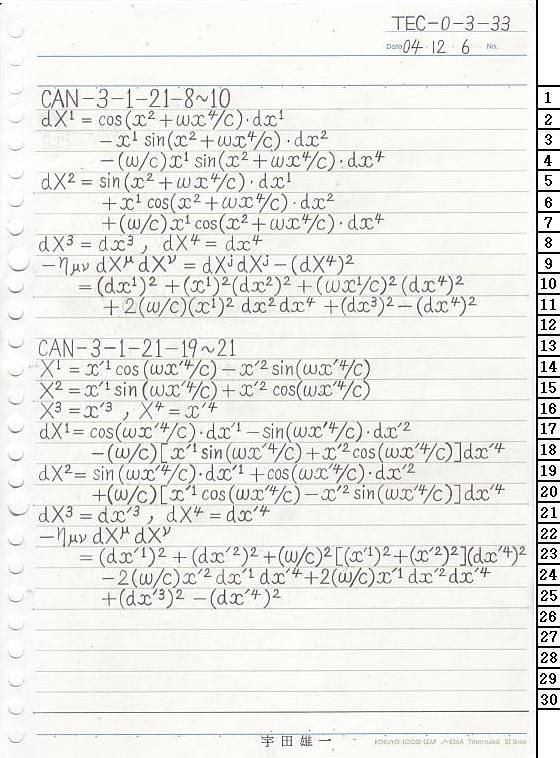 TEC-0-3-33
Date 04・12・6 No.
CAN-3-1-21-8~10
dX¹ = cos(x²+ωx⁴/c)・dx¹
-x¹ sin(x²+ωx⁴/c)・dx²
-(ω/c)x¹ sin(x²+ωx⁴/c)・dx⁴
dX² = sin(x²+ωx⁴/c)・dx¹
+x¹ cos(x²+ωx⁴/c)・dx²
+(ω/c)x¹ cos(x²+ωx⁴/c)・dx⁴
dX³ = dx³, dX⁴ = dx⁴
-ημν dX^μ dX^ν = dX^j dX^j-(dX⁴)²
= (dx¹)²+(x¹)²(dx²)²+(ωx¹/c)²(dx⁴)²
+2(ω/c)(x¹)² dx² dx⁴ +(dx³)²-(dx⁴)²
CAN-3-1-21-19~21
X¹ = x'¹ cos(ωx'⁴/c)-x'² sin(ωx'⁴/c)
X² = x'¹ sin(ωx'⁴/c)+x'² cos(ωx'⁴/c)
X³ = x'³, X⁴ = x'⁴
dX¹ = cos(ωx'⁴/c)・dx'¹-sin(ωx'⁴/c)・dx'²
-(ω/c)[x'¹ sin(ωx'⁴/c)+x'² cos(ωx'⁴/c)]dx'⁴
dX² = sin(ωx'⁴/c)・dx'¹+cos(ωx'⁴/c)・dx'²
+(ω/c)[x'¹ cos(ωx'⁴/c)-x'² sin(ωx'⁴/c)]dx'⁴
dX³ = dx'³, dX⁴ = dx'⁴
-ημν dX^μ dX^ν
= (dx'¹)²+(dx'²)²+(ω/c)²[(x'¹)²+(x'²)²](dx'⁴)²
-2(ω/c)x'² dx'¹ dx'⁴+2(ω/c)x'¹ dx'² dx'⁴
+(dx'³)²-(dx'⁴)²
1
2
3
4
5
6
7
8
9
10
11
12
13
14
15
16
17
18
19
20
21
22
23
24
25
26
27
28
29
30
宇田雄一
KOKUYO LOOSE-LEAF ノ-836A 7mm ruled 31 lines